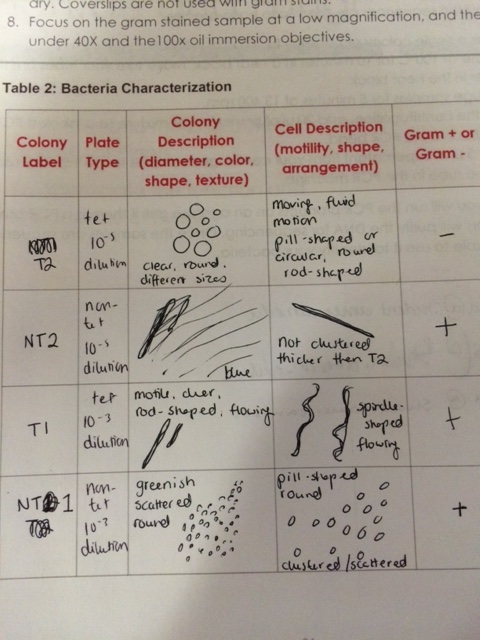 ary. Coverslips are not used with gram stains.
8. Focus on the gram stained sample at a low magnification, and the
under 40X and the100x oil immersion objectives.
Table 2: Bacteria Characterization
Colony Label
Plate Type
Colony Description (diameter, color, shape, texture)
Cell Description (motility, shape, arrangement)
Gram + or Gram -
T2
tet
10-5
dilution
clear, round,
different sizes
moving, fluid
motion
pill-shaped or
circular, round
rod-shaped
-
NT2
non-
tet
10-5
dilution
blue
not clustered
thicker then T2
+
T1
tet
10-3
dilution
motile, clear,
rod-shaped, flowing
spindle-
shaped
flowing
+
NT 1
non-
tet
10-3
dilution
greenish
scattered
round
pill-shaped
round
clustered/scattered
+